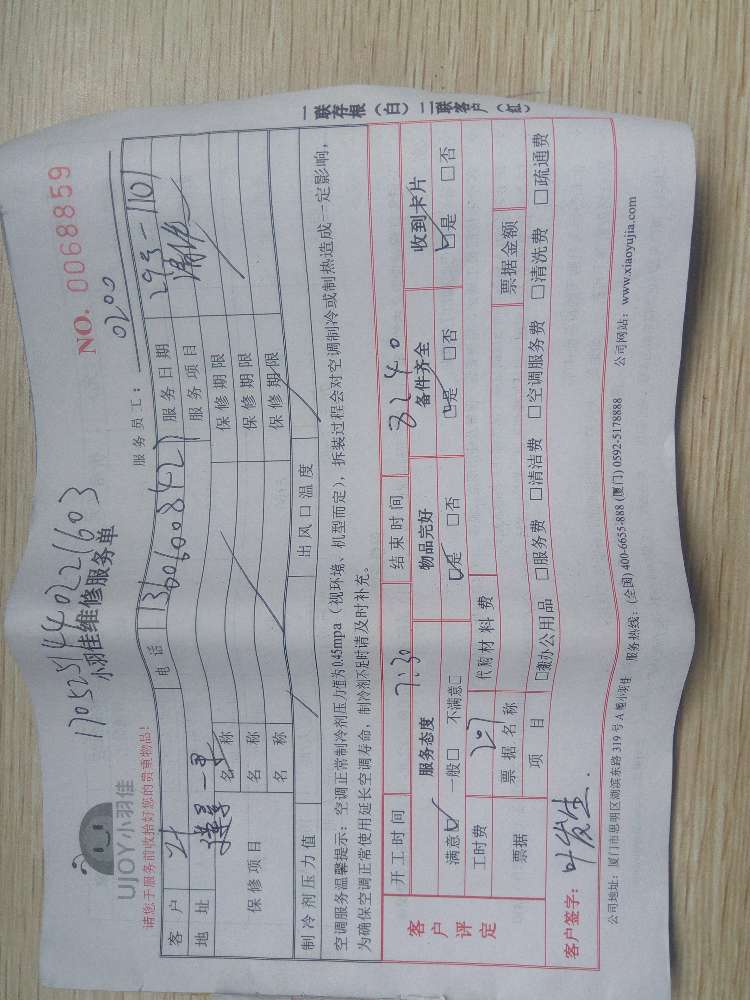 170525440221603
NO. 0068859
UJOY小羽佳
小羽佳维修服务单
请您于服务前收拾好您的贵重物品!
服务员工: 0200
客户 叶 电话 13606008421 服务日期
地址 服务项目 清洗
保修项目 名称 保修期限
名称 保修期限
名称 保修期限
制冷剂压力值 出风口温度
空调服务温馨提示: 空调正常制冷剂压力值为0.45mpa (视环境、机型而定), 拆装过程会对空调制冷或制热造成一定影响,
为确保空调正常使用延长空调寿命, 制冷剂不足时请及时补充。
开工时间 7:30 结束时间
客户评定 服务态度 物品完好 备件齐全 收到卡片
满意☑ 一般□ 不满意□ ☑是 □否 ☑是 □否 ☑是 □否
工时费 207 代购材料费
票据 票据名称 票据金额
项目 □办公用品 □服务费 □清洁费 □空调服务费 □清洗费 □疏通费
客户签字: 叶发生
公司地址: 厦门市思明区湖滨东路 319 号 A 幢小羽佳 服务热线: (全国) 400-6655-888 (厦门) 0592-5178888 公司网站: www.xiaoyujia.com
一联存根(白) 二联客户(红)